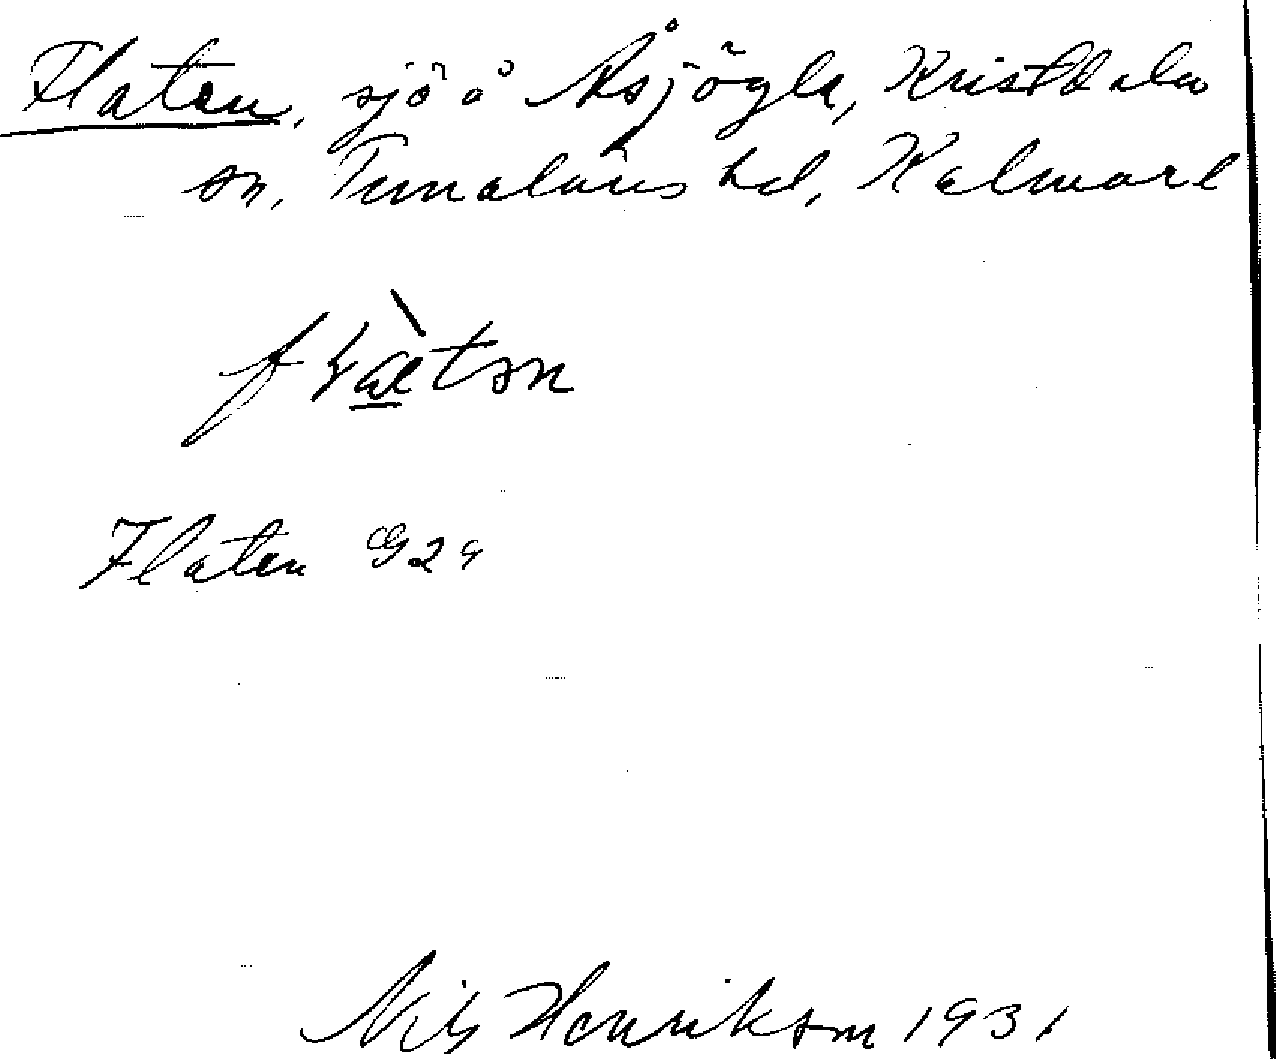 Flaten, sjö å Åsjögle, Kristdala
sn, Tunaläns hd, Kalmar l
Flaten G 29
Nils Henrikson 1931